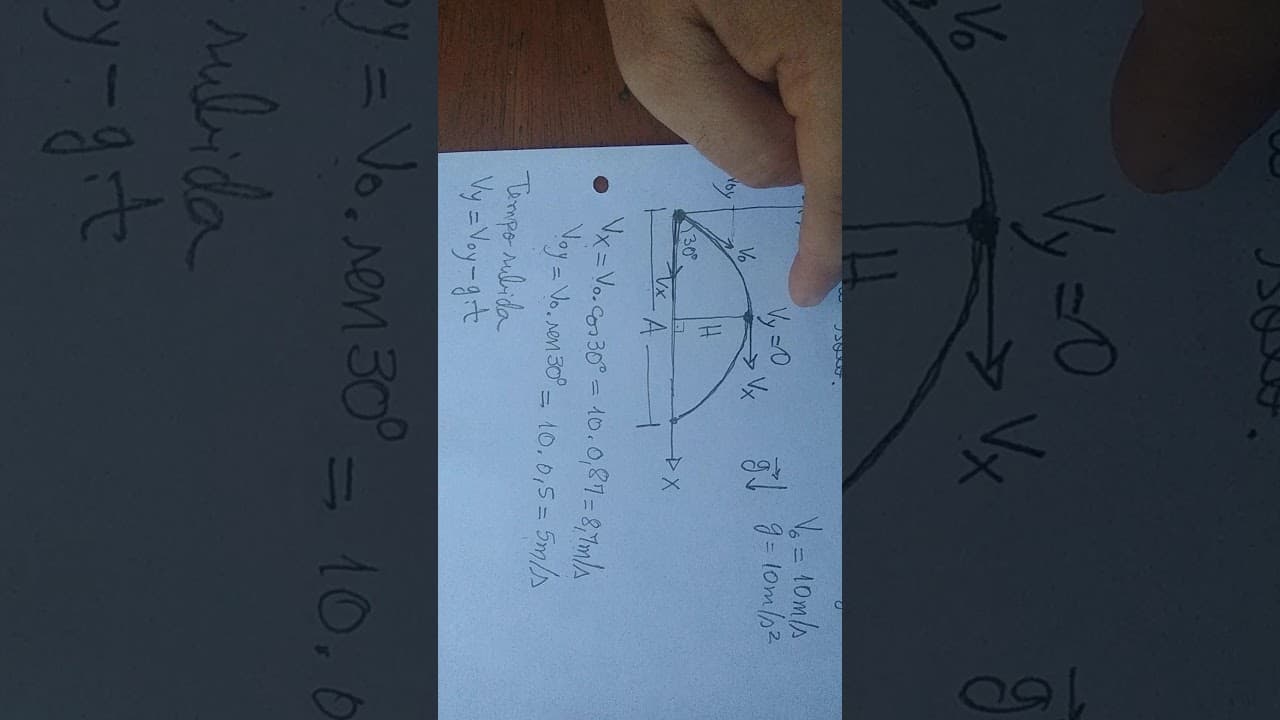 V₀ = 10m/s
g⃗↓ g = 10m/s²
Vy = 0
V₀y V₀ Vx
H
30°
Vx X
A
Vx = V₀.cos30° = 10.0,87 = 8,7m/s
V₀y = V₀.sen30° = 10.0,5 = 5m/s
Tempo subida
Vy = V₀y - g.t